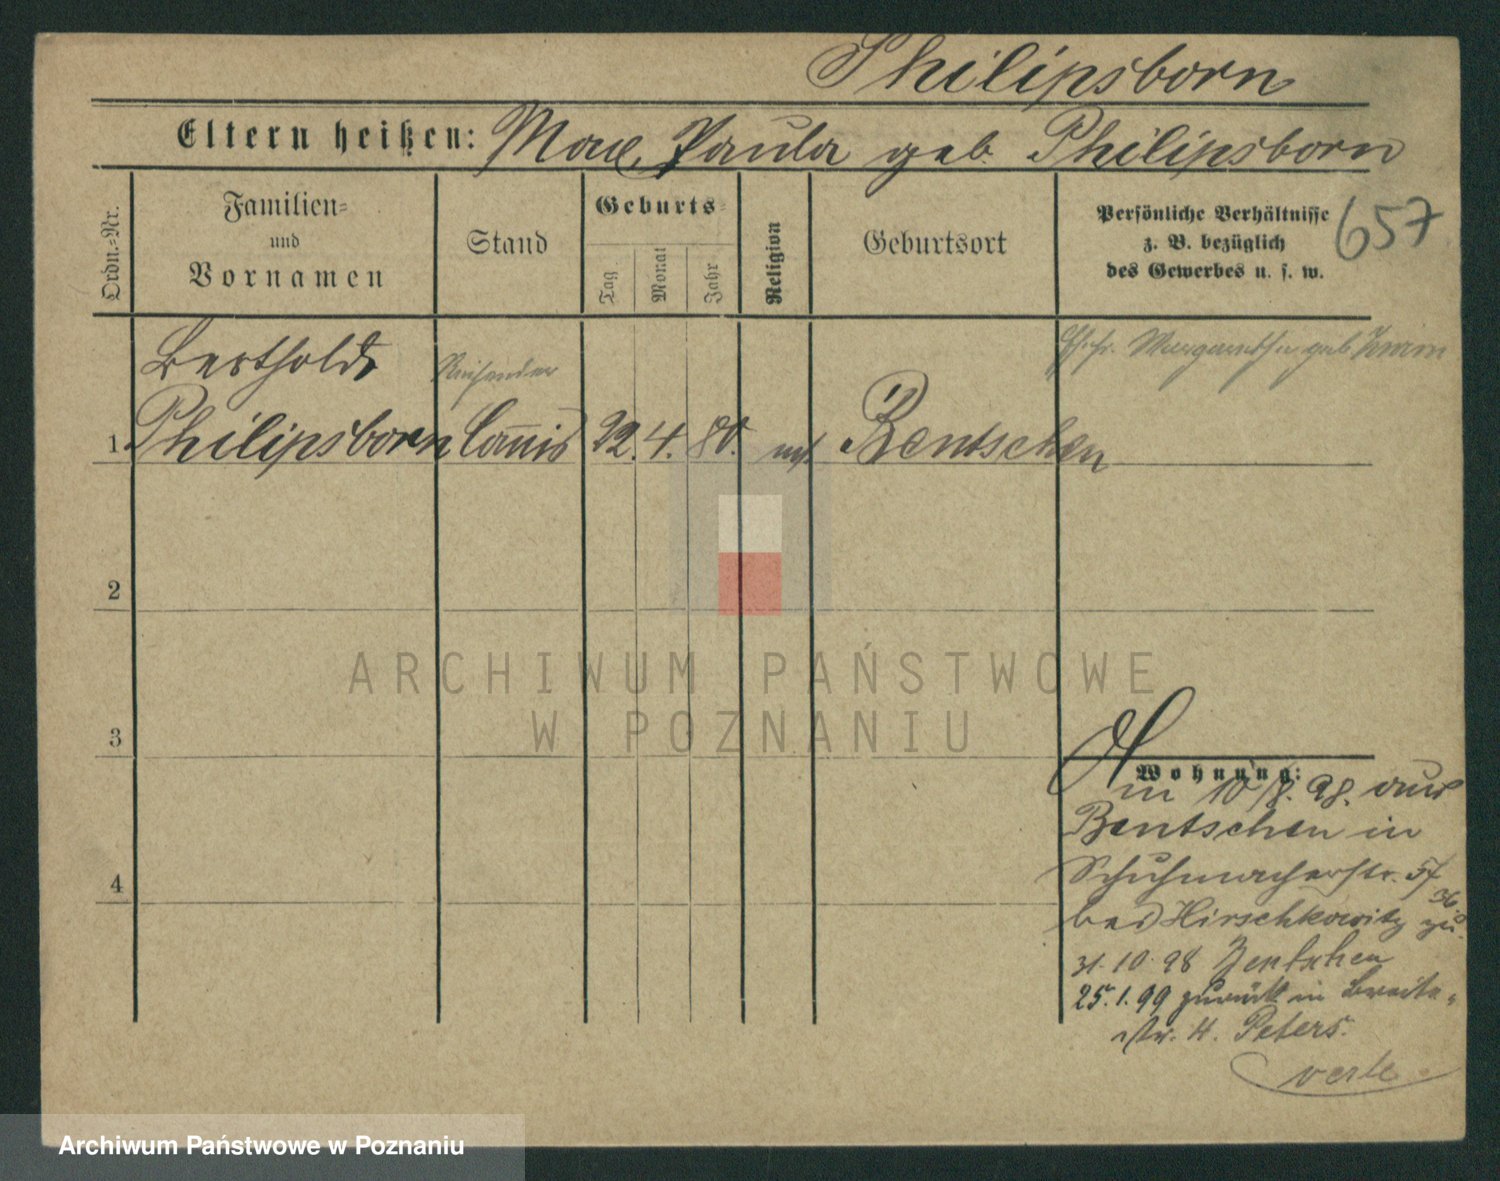 Philipsborn
Eltern heißen: Max, Paula geb. Philipsborn
Ordn.-Nr.
Familien-
und
Vornamen
Stand
Geburts-
Tag
Monat
Jahr
Religion
Geburtsort
Persönliche Verhältnisse
z. B. bezüglich
des Gewerbes u. s. w.
657
Berthold
Reisender
Ehefr. geb.
1 Philipsborn Com̅is 22. 4. 80. mos Bentschen
2
3
4
ARCHIWUM PAŃSTWOWE
W POZNANIU
Wohnung:
10/8. 98. aus
Bentschen in
Schuhmacherstr. 57
bei Hirschkowitz
31. 10 98 Bentschen
25. 1. 99 zurück in Breite-
str. 4. Peters.
verte
Archiwum Państwowe w Poznaniu